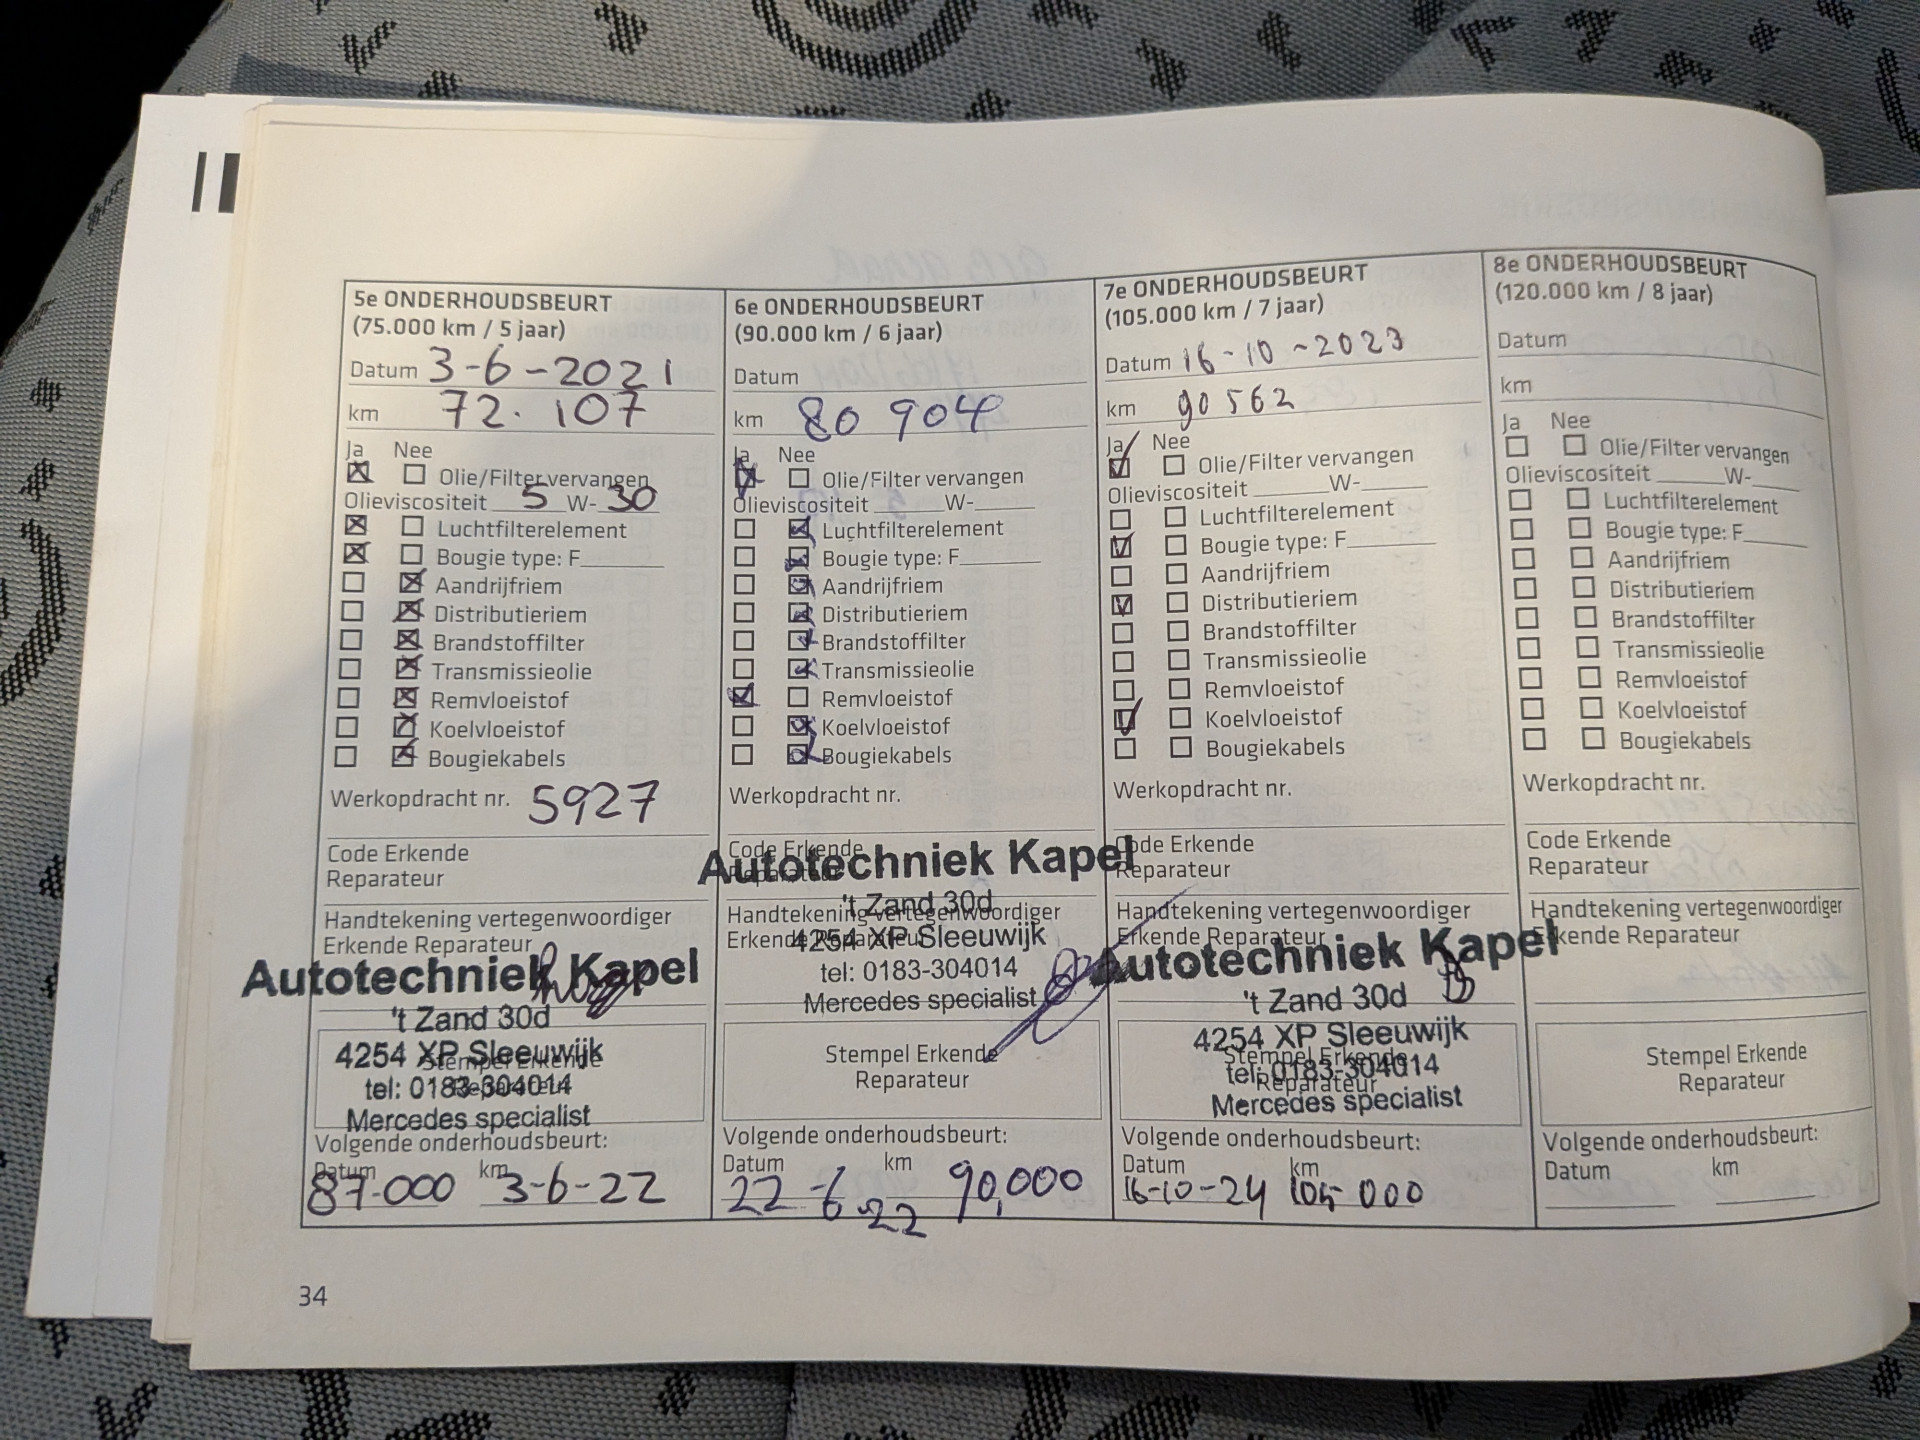 5e ONDERHOUDSBEURT
(75.000 km / 5 jaar)
Datum 3-6-2021
km 72.107
Ja Nee
Olie/Filter vervangen
Olieviscositeit 5 W- 30
Luchtfilterelement
Bougie type: F
Aandrijfriem
Distributieriem
Brandstoffilter
Transmissieolie
Remvloeistof
Koelvloeistof
Bougiekabels
Werkopdracht nr. 5927
Code Erkende
Reparateur
Handtekening vertegenwoordiger
Erkende Reparateur
Autotechniek Kapel
't Zand 30d
4254 XP Sleeuwijk
Stempel Erkende
tel: 0183-304014
Reparateur
Mercedes specialist
Volgende onderhoudsbeurt:
Datum km
87-000 3-6-22
6e ONDERHOUDSBEURT
(90.000 km / 6 jaar)
Datum
km 80 904
Ja Nee
Olie/Filter vervangen
Olieviscositeit W-
Luchtfilterelement
Bougie type: F
Aandrijfriem
Distributieriem
Brandstoffilter
Transmissieolie
Remvloeistof
Koelvloeistof
Bougiekabels
Werkopdracht nr.
Code Erkende
Reparateur
Autotechniek Kapel
't Zand 30d
Handtekening vertegenwoordiger
Erkende Reparateur
4254 XP Sleeuwijk
tel: 0183-304014
Mercedes specialist
Stempel Erkende
Reparateur
Volgende onderhoudsbeurt:
Datum km
22-6-22 90,000
7e ONDERHOUDSBEURT
(105.000 km / 7 jaar)
Datum 16-10-2023
km 90562
Ja Nee
Olie/Filter vervangen
Olieviscositeit W-
Luchtfilterelement
Bougie type: F
Aandrijfriem
Distributieriem
Brandstoffilter
Transmissieolie
Remvloeistof
Koelvloeistof
Bougiekabels
Werkopdracht nr.
Code Erkende
Reparateur
Handtekening vertegenwoordiger
Erkende Reparateur
Autotechniek Kapel
't Zand 30d
4254 XP Sleeuwijk
Stempel Erkende
tel: 0183-304014
Reparateur
Mercedes specialist
Volgende onderhoudsbeurt:
Datum km
16-10-24 105 000
8e ONDERHOUDSBEURT
(120.000 km / 8 jaar)
Datum
km
Ja Nee
Olie/Filter vervangen
Olieviscositeit W-
Luchtfilterelement
Bougie type: F
Aandrijfriem
Distributieriem
Brandstoffilter
Transmissieolie
Remvloeistof
Koelvloeistof
Bougiekabels
Werkopdracht nr.
Code Erkende
Reparateur
Handtekening vertegenwoordiger
Erkende Reparateur
Stempel Erkende
Reparateur
Volgende onderhoudsbeurt:
Datum km
34